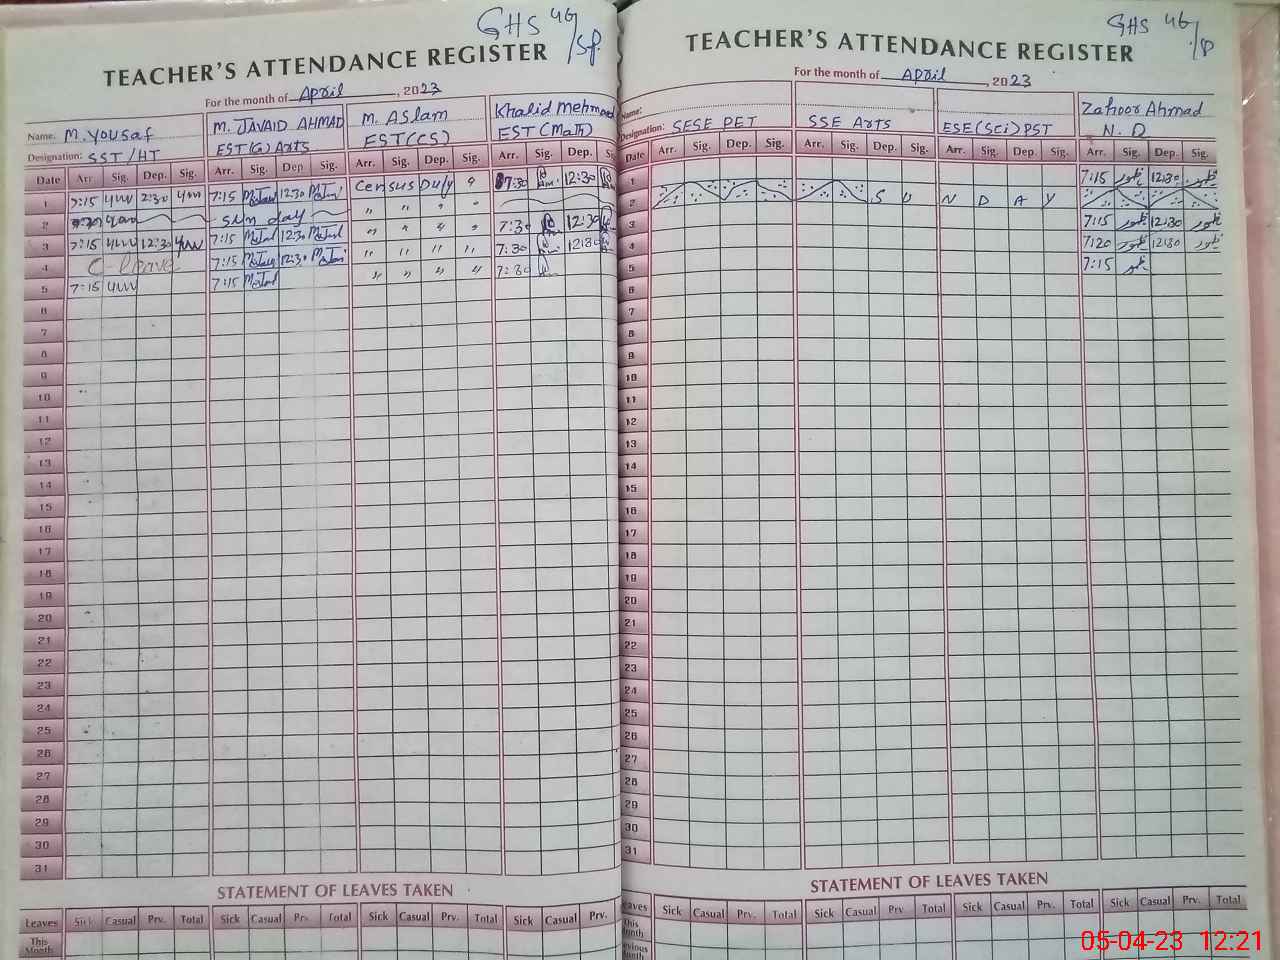 GHS 46/SP.
TEACHER'S ATTENDANCE REGISTER
For the month of April, 2023
Name: M. Yousaf M. JAVAID AHMAD M. Aslam Khalid Mehmood
Designation: SST/HT EST(G) Arts EST(CS) EST (Math)
Date Arr. Sig. Dep. Sig. Arr. Sig. Dep. Sig. Arr. Sig. Dep. Sig. Arr. Sig. Dep.
1 7:15 2:30 7:15 12:30 Census Duty " 7:30 12:30
2 Sunday " " " "
3 7:15 12:30 7:15 12:30 " " " " 7:30 12:30
4 C-leave 7:15 12:30 " " " " 7:30 12:30
5 7:15 7:15 " " " " 7:30
6
7
8
9
10
11
12
13
14
15
16
17
18
19
20
21
22
23
24
25
26
27
28
29
30
31
STATEMENT OF LEAVES TAKEN
Leaves Sick Casual Prv. Total Sick Casual Prv. Total Sick Casual Prv. Total Sick Casual Prv.
This Month
GHS 46/P
TEACHER'S ATTENDANCE REGISTER
For the month of April, 2023
Name: Zahoor Ahmad
Designation: SESE PET SSE Arts ESE(Sci) PST N.Q
Date Arr. Sig. Dep. Sig. Arr. Sig. Dep. Sig. Arr. Sig. Dep. Sig. Arr. Sig. Dep. Sig.
1 7:15 ظہور 12:30 ظہور
2 S U N D A Y
3 7:15 ظہور 12:30 ظہور
4 7:20 ظہور 12:30 ظہور
5 7:15 ظہور
6
7
8
9
10
11
12
13
14
15
16
17
18
19
20
21
22
23
24
25
26
27
28
29
30
31
STATEMENT OF LEAVES TAKEN
Sick Casual Prv. Total Sick Casual Prv. Total Sick Casual Prv. Total Sick Casual Prv. Total
05-04-23 12:21